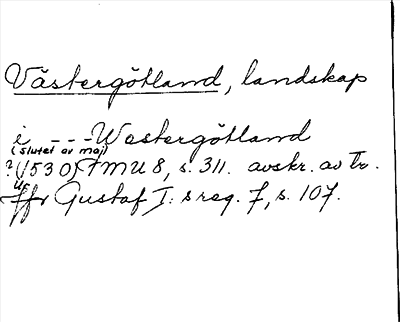 Västergötland, landskap
i - - - Westergötland
(slutet av maj)
? (1530) FMU 8, s. 311. avskr. av tr.
Ur Gustaf I:s reg. 7, s. 107.